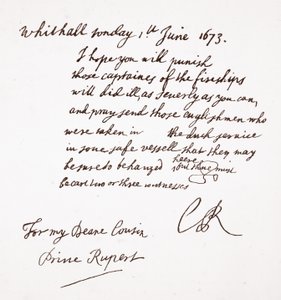 Whithall sonday 1st June 1673.
I hope you will punish
those captaines of the fireships
will did ill, as severly as you can,
and pray send those english men who
were taken in the duch service
in some safe vessell that they may
be sure to be hanged heere but thire must
be cart two or three witnesses
CR
For my Deare Cousin
Prince Rupert